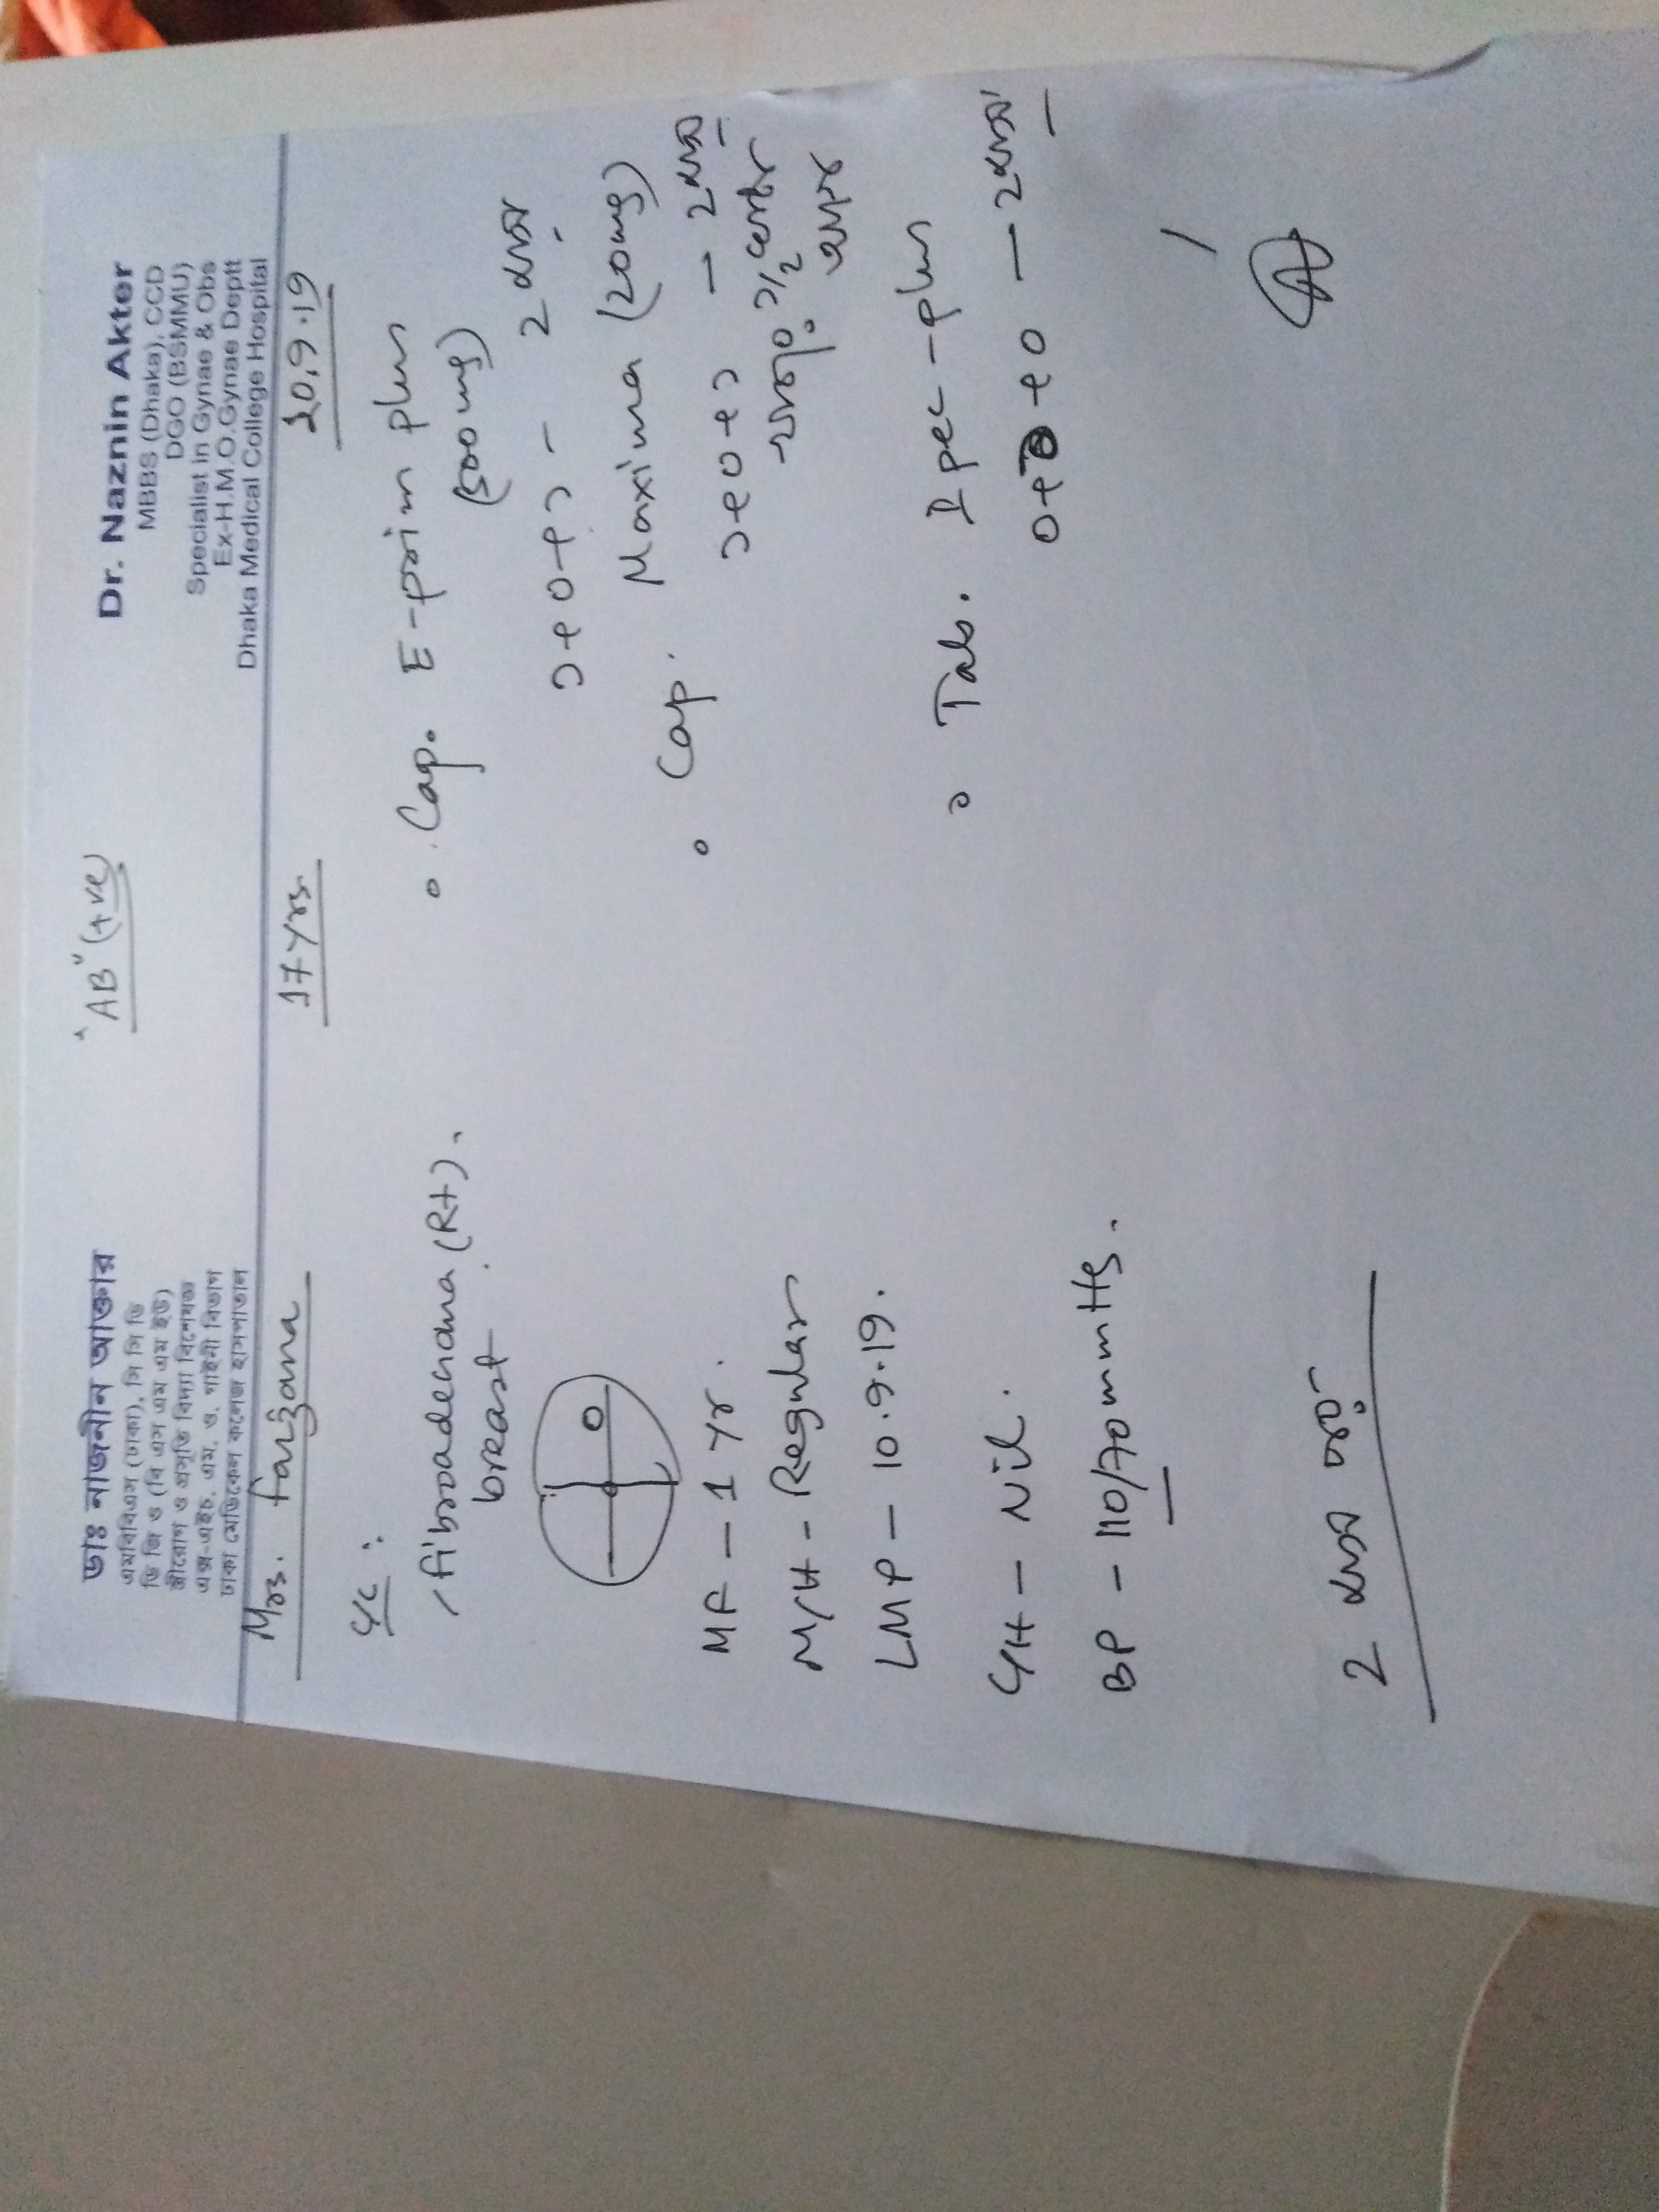 ডাঃ নাজনীন আক্তার
এমবিবিএস (ঢাকা), সি সি ডি
ডি জি ও (বি এস এম এম ইউ)
স্ত্রীরোগ ও প্রসূতি বিদ্যা বিশেষজ্ঞ
এক্স-এইচ. এম. ও. গাইনী বিভাগ
ঢাকা মেডিকেল কলেজ হাসপাতাল
"AB" (+ve)
Dr. Naznin Akter
MBBS (Dhaka), CCD
DGO (BSMMU)
Specialist in Gynae & Obs
Ex-H.M.O.Gynae Deptt
Dhaka Medical College Hospital
Mrs. Farzana
17 Yrs.
20.9.19
C/C :
Fibroadenoma (Rt).
breast
MF - 1 Yr.
M/H - Regular
LMP - 10.9.19.
C/H - Nil.
BP - 110/70 mmHg.
2 মাস পর
Cap. E-prim plus
(500mg)
১+০+১ - 2 মাস
Cap. Maxima (20mg)
১+০+১ - 2 মাস
খাওয়ার ১/২ ঘন্টা আগে
Tab. Ipec-plus
0+0+0 - 2 মাস